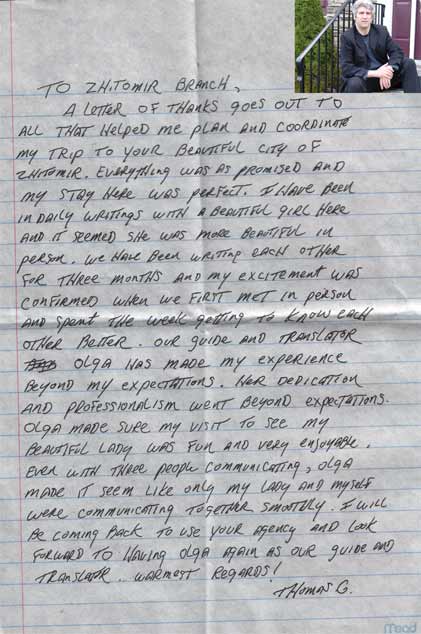 TO ZHITOMIR BRANCH,
A LETTER OF THANKS GOES OUT TO
ALL THAT HELPED ME PLAN AND COORDINATE
MY TRIP TO YOUR BEAUTIFUL CITY OF
ZHITOMIR. EVERYTHING WAS AS PROMISED AND
MY STAY HERE WAS PERFECT. I HAVE BEEN
IN DAILY WRITINGS WITH A BEAUTIFUL GIRL HERE
AND IT SEEMED SHE WAS MORE BEAUTIFUL IN
PERSON. WE HAVE BEEN WRITING EACH OTHER
FOR THREE MONTHS AND MY EXCITEMENT WAS
CONFIRMED WHEN WE FIRST MET IN PERSON
AND SPENT THE WEEK GETTING TO KNOW EACH
OTHER BETTER. OUR GUIDE AND TRANSLATOR
OLGA HAS MADE MY EXPERIENCE
BEYOND MY EXPECTATIONS. HER DEDICATION
AND PROFESSIONALISM WENT BEYOND EXPECTATIONS.
OLGA MADE SURE MY VISIT TO SEE MY
BEAUTIFUL LADY WAS FUN AND VERY ENJOYABLE.
EVEN WITH THREE PEOPLE COMMUNICATING, OLGA
MADE IT SEEM LIKE ONLY MY LADY AND MYSELF
WERE COMMUNICATING TOGETHER SMOOTHLY. I WILL
BE COMING BACK TO USE YOUR AGENCY AND LOOK
FORWARD TO HAVING OLGA AGAIN AS OUR GUIDE AND
TRANSLATOR. WARMEST REGARDS!
THOMAS G.
Mead